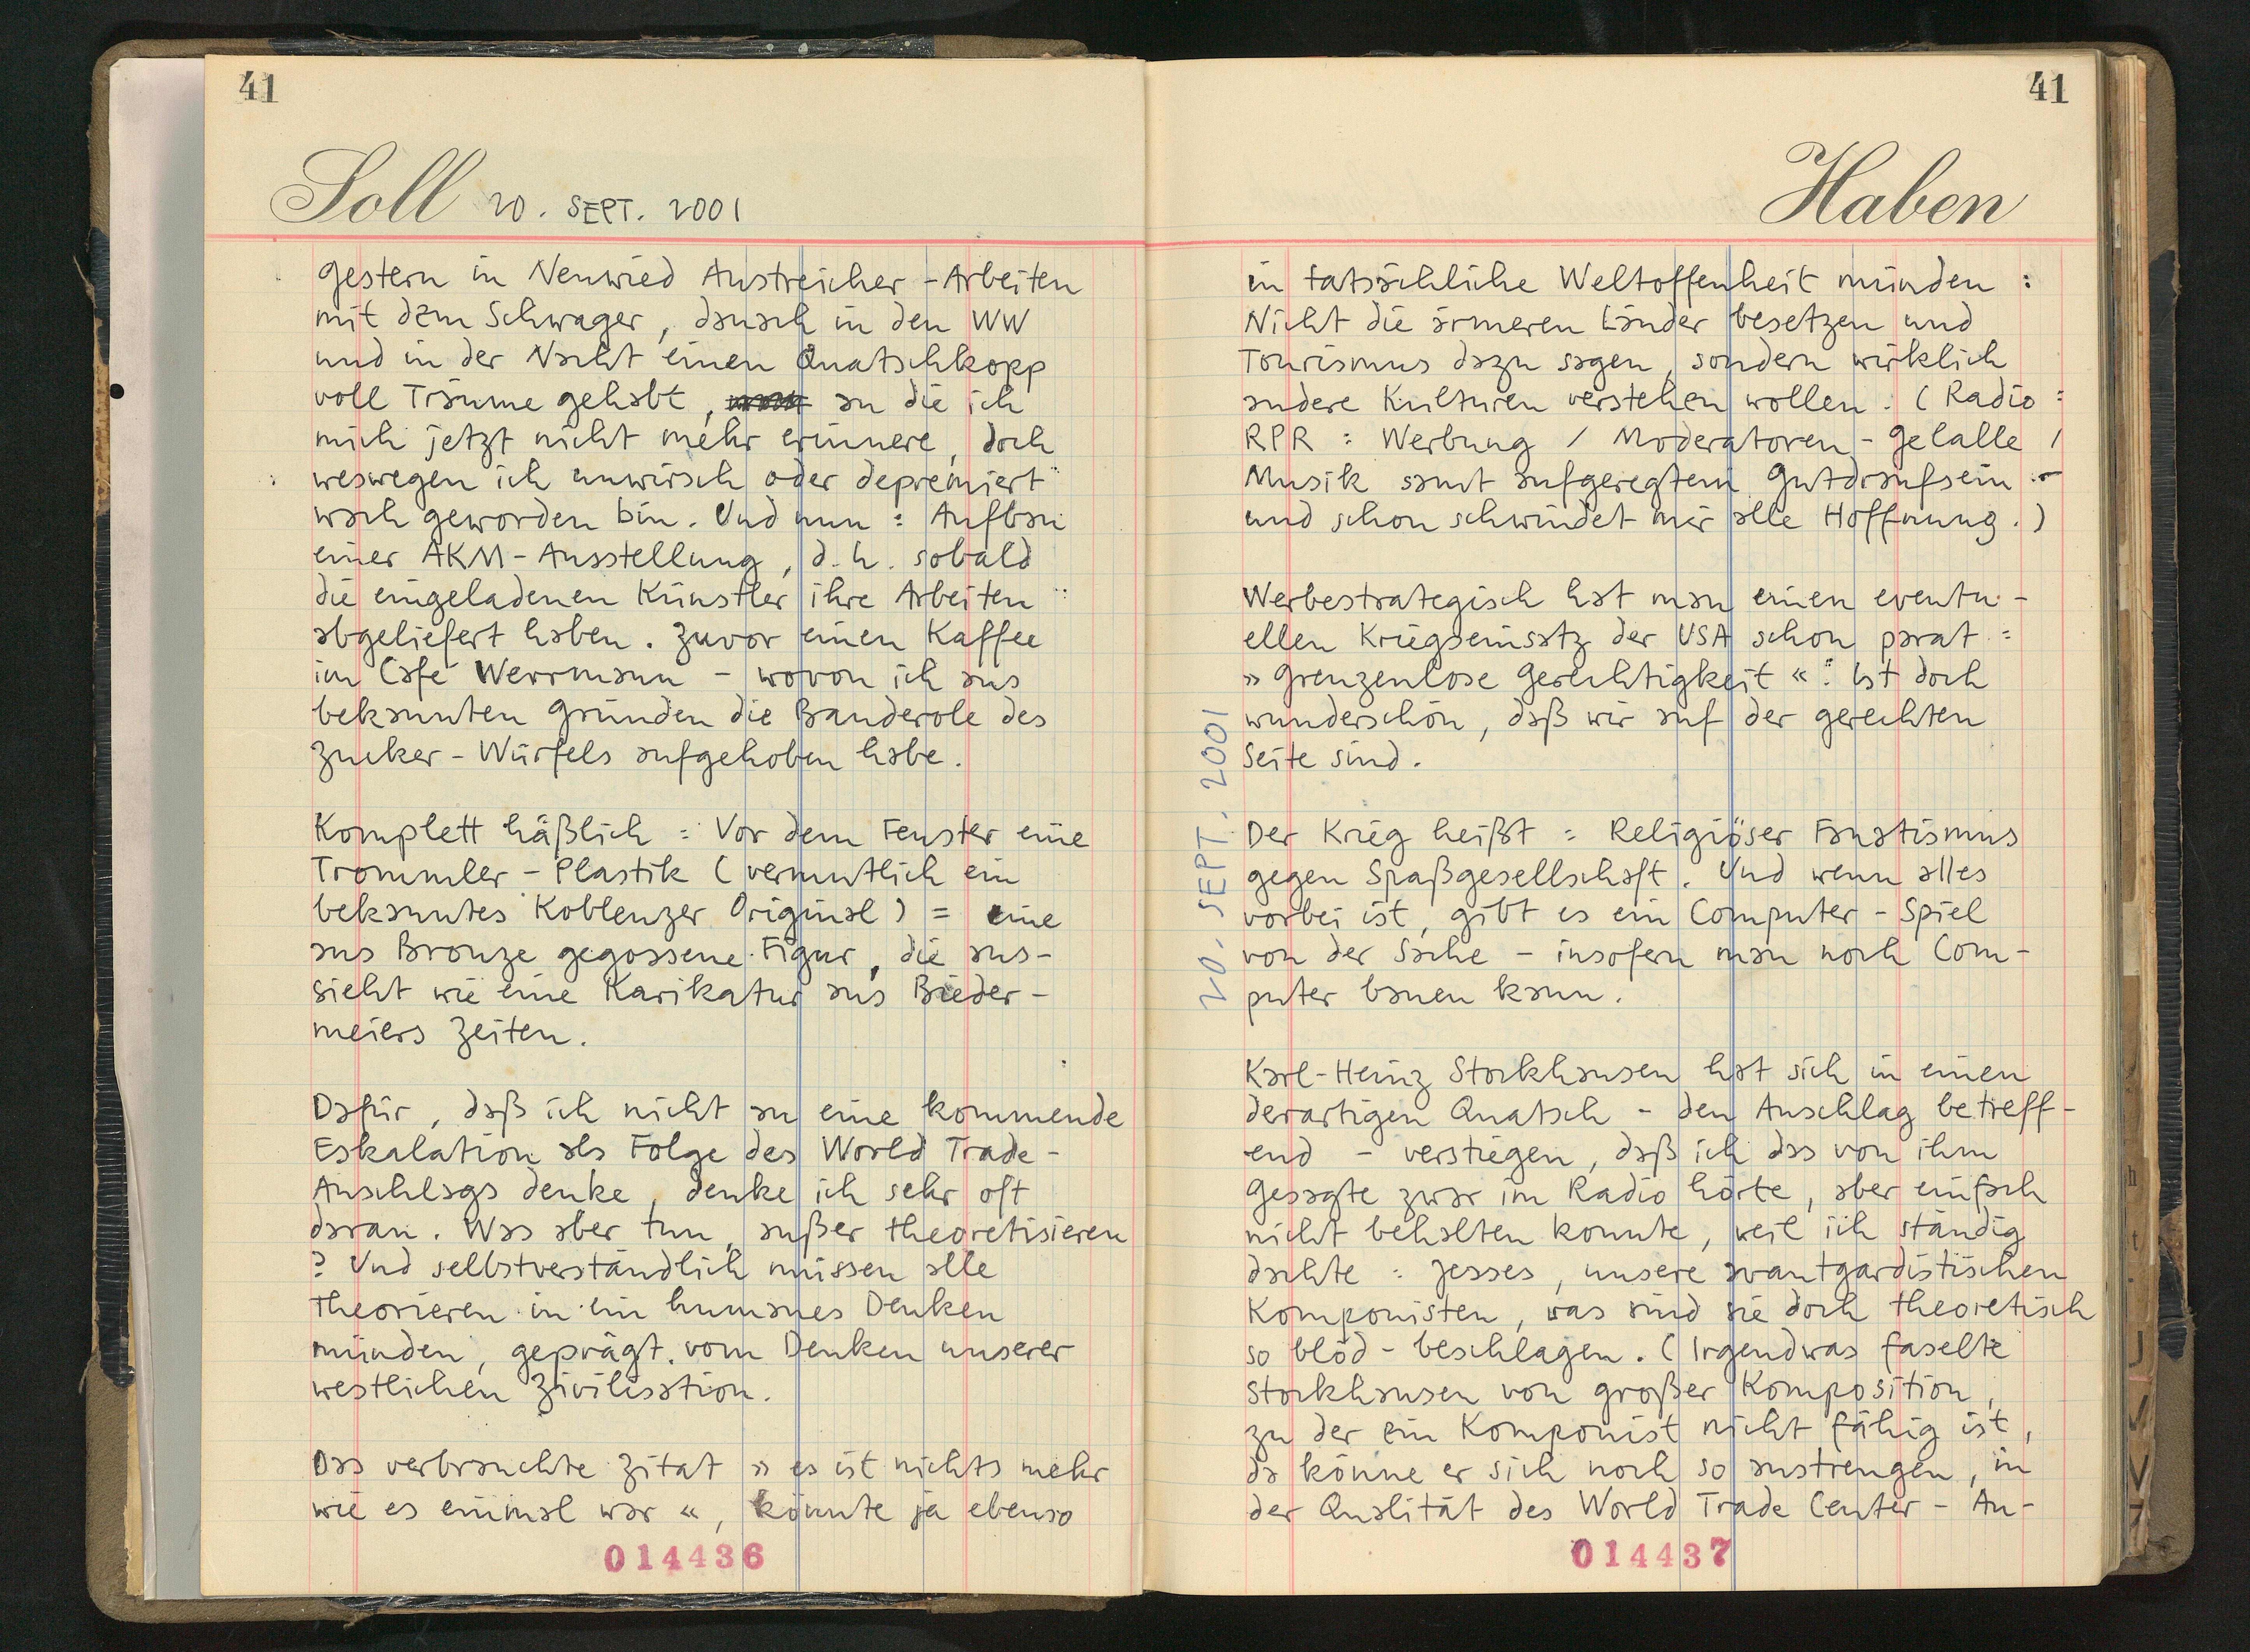 41
Soll 20. SEPT. 2001
Gestern in Neuwied Anstreicher-Arbeiten
mit dem Schwager, danach in den WW
und in der Nacht einen Quatschkopp
voll Träume gehabt, an die ich
mich jetzt nicht mehr erinnere, doch
weswegen ich unwirsch oder depremiert
wach geworden bin. Und nun: Aufbau
einer AKM-Ausstellung, d.h. sobald
die eingeladenen Künstler ihre Arbeiten
abgeliefert haben. Zuvor einen Kaffee
im Café Werrmann – wovon ich aus
bekannten Gründen die Banderole des
Zucker-Würfels aufgehoben habe.
Komplett häßlich: Vor dem Fenster eine
Trommler-Plastik (vermutlich ein
bekanntes Koblenzer Original) = eine
aus Bronze gegossene Figur, die aus-
sieht wie eine Karikatur aus Bieder-
meiers Zeiten.
Dafür, daß ich nicht an eine kommende
Eskalation als Folge des World Trade-
Anschlags denke, denke ich sehr oft
daran. Was aber tun, außer theoretisieren
? Und selbstverständlich müssen alle
Theorieren in ein humanes Denken
münden, geprägt vom Denken unserer
westlichen Zivilisation.
Das verbrauchte Zitat »es ist nichts mehr
wie es einmal war«, könnte ja ebenso
014436
41
Haben
in tatsächliche Weltoffenheit münden:
Nicht die ärmeren Länder besetzen und
Tourismus dazu sagen, sondern wirklich
andere Kulturen verstehen wollen. (Radio:
RPR: Werbung / Moderatoren-Gelalle /
Musik samt aufgeregtem Gutdraufsein –
und schon schwindet mir alle Hoffnung.)
Werbestrategisch hat man einen eventu-
ellen Kriegseinsatz der USA schon parat:
»Grenzenlose Gerechtigkeit«. Ist doch
wunderschön, daß wir auf der gerechten
Seite sind.
20. SEPT. 2001
Der Krieg heißt: Religiöser Fanatismus
gegen Spaßgesellschaft. Und wenn alles
vorbei ist, gibt es ein Computer-Spiel
von der Sache – insofern man noch Com-
puter bauen kann.
Karl-Heinz Stockhausen hat sich in einen
derartigen Quatsch – den Anschlag betreff-
end – verstiegen, daß ich das von ihm
Gesagte zwar im Radio hörte, aber einfach
nicht behalten konnte, weil ich ständig
dachte: Jesses, unsere avantgardistischen
Komponisten, was sind sie doch theoretisch
so blöd-beschlagen. (Irgendwas faselte
Stockhausen von großer Komposition,
zu der ein Komponist nicht fähig ist,
da könne er sich noch so anstrengen, in
der Qualität des World Trade Center-An-
014437
h
t
J
V
V
Z